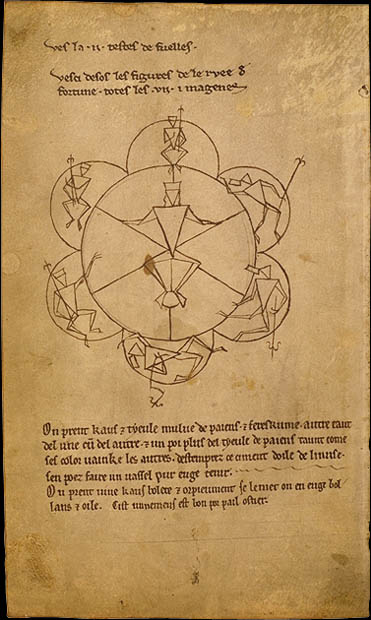 ves la .ii. testes de fuelles.
vesci desos les figures de le ruee d
fortune. totes les .vii. imagenes
On prent kaus ⁊ tyeule mulue de paiens. ⁊ feres kume. autre tant
del une cū del autre. ⁊ un poi plus del tyeule de paiens tant come
ses color vainke les autres. destemprez ce ciment doile de linuse.
sen poez faire un vassel pur euge tenir.
On prent vive kaus bolete ⁊ orpieument se le met on en euge bol
lans ⁊ oile. Cist unnemens est bon por poil oster.